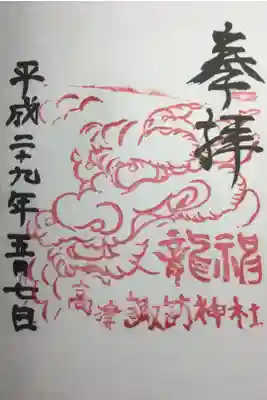 奉拝
龍福
高津諏訪神社
平成二十九年五月七日